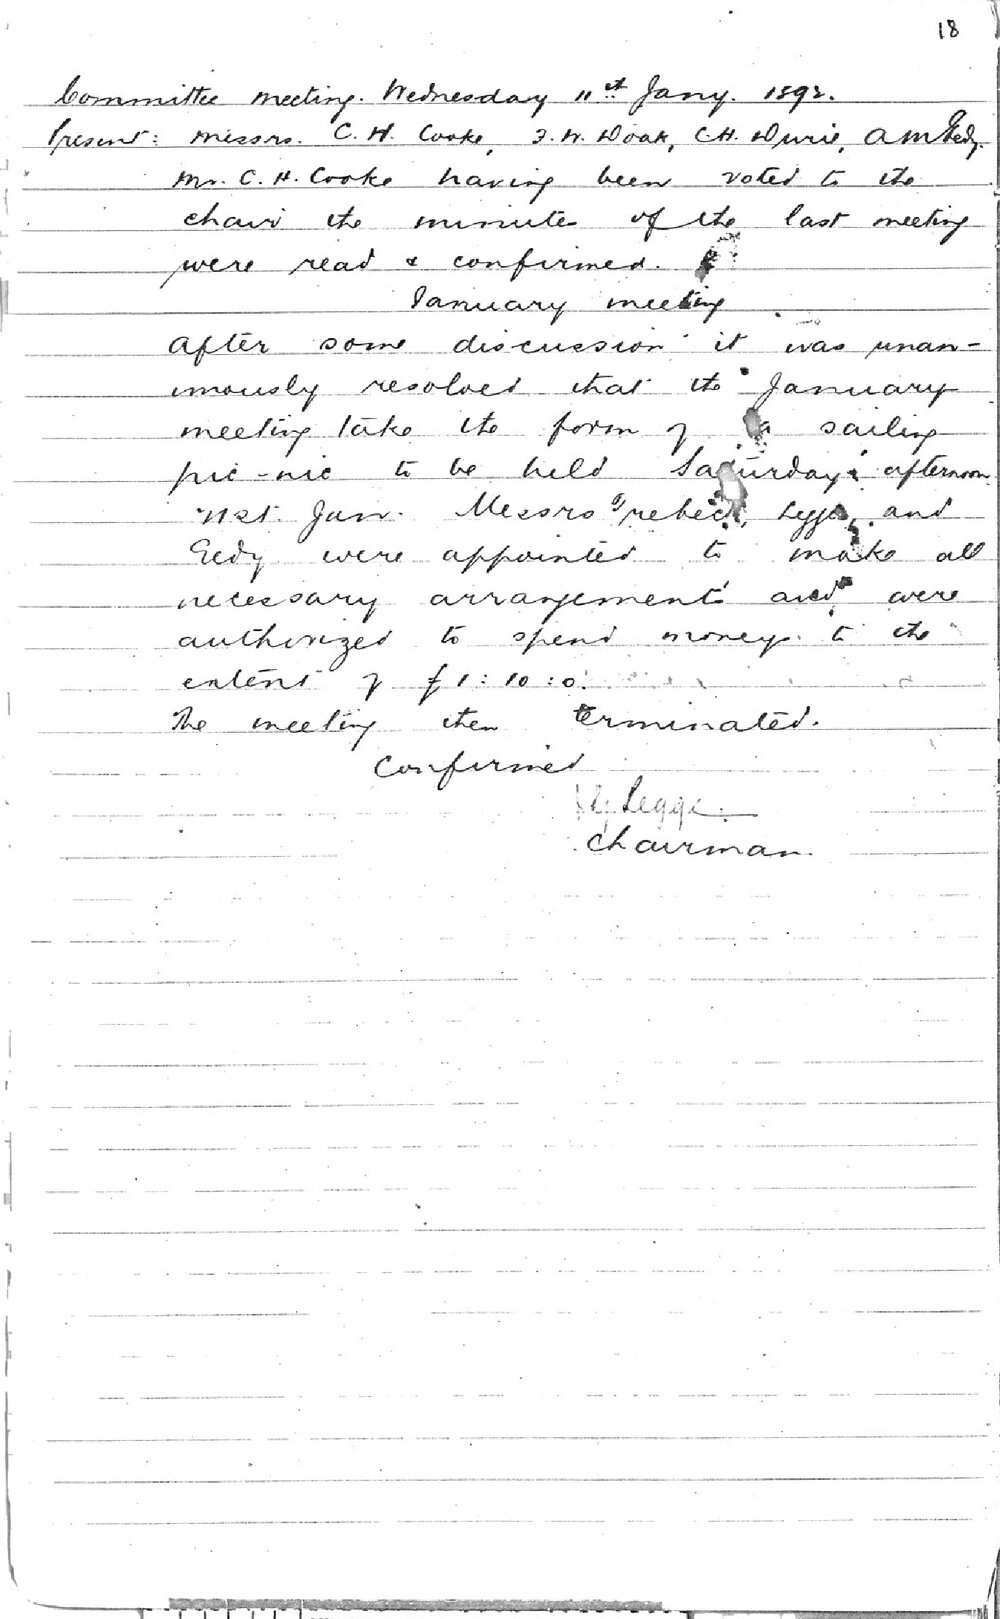 18
Committee meeting. Wednesday 11st Jany. 1892.
Present: Messrs. C. H. Cooke, J. W. Doak, C. H. Durie, A M Gedy.
Mr. C. H. Cooke having been voted to the
chair the minutes of the last meeting
were read & confirmed.
January meeting
After some discussion it was unan-
imously resolved that the January
meeting take the form of a sailing
pic-nic to be held Saturday afternoon
21st. Jan. Messrs Trebeck, Legge, and
Gedy were appointed to make all
necessary arrangements and were
authorized to spend money to the
extent of £1:10:0.
The meeting then terminated.
Confirmed
Legge.
Chairman.